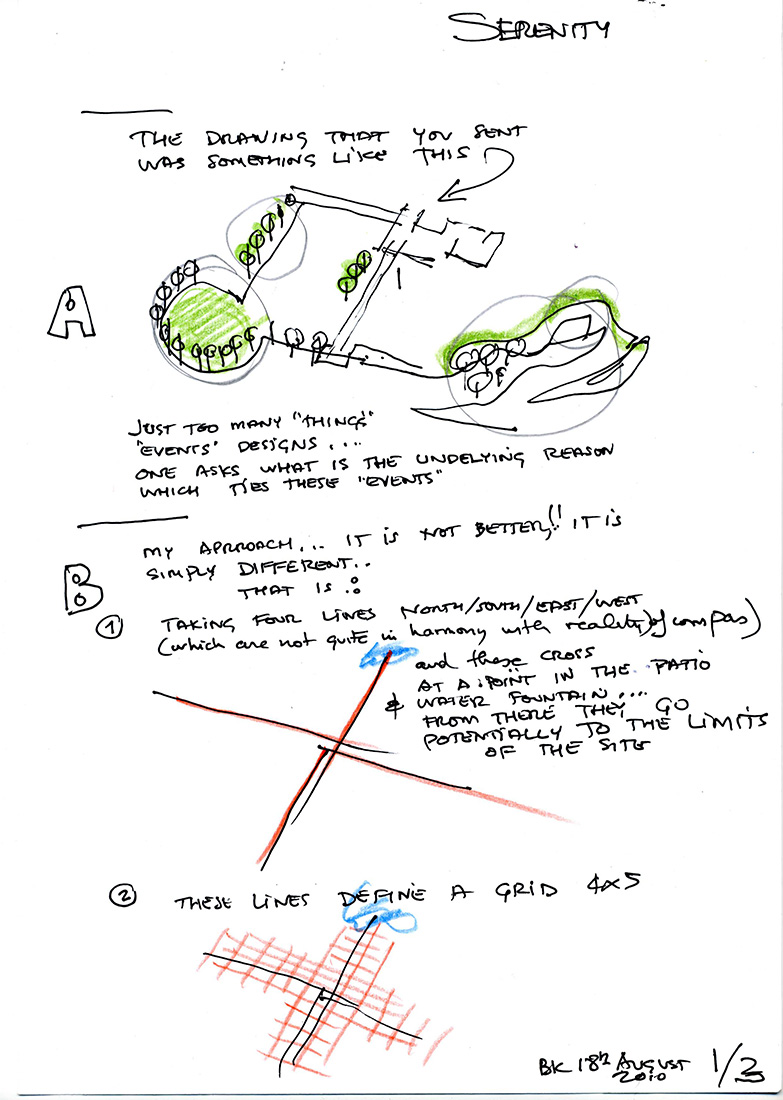 SERENITY
THE DRAWING THAT YOU SENT
WAS SOMETHING LIKE THIS
A
JUST TOO MANY "THINGS"
"EVENTS" DESIGNS....
ONE ASKS WHAT IS THE UNDELYING REASON
WHICH TIES THESE "EVENTS"
B
MY APRROACH... IT IS NOT BETTER!! IT IS
SIMPLY DIFFERENT..
THAT IS :
1 TAKING FOUR LINES NORTH/SOUTH/EAST/WEST
(which are not quite in harmony with reality) of compas)
and these CROSS
AT A POINT IN THE PATIO
& WATER FOUNTAIN....
FROM THERE THEY GO
POTENTIALLY TO THE LIMITS
OF THE SITE
2 THESE LINES DEFINE A GRID 4x5
BK 18th AUGUST
2010
1/3